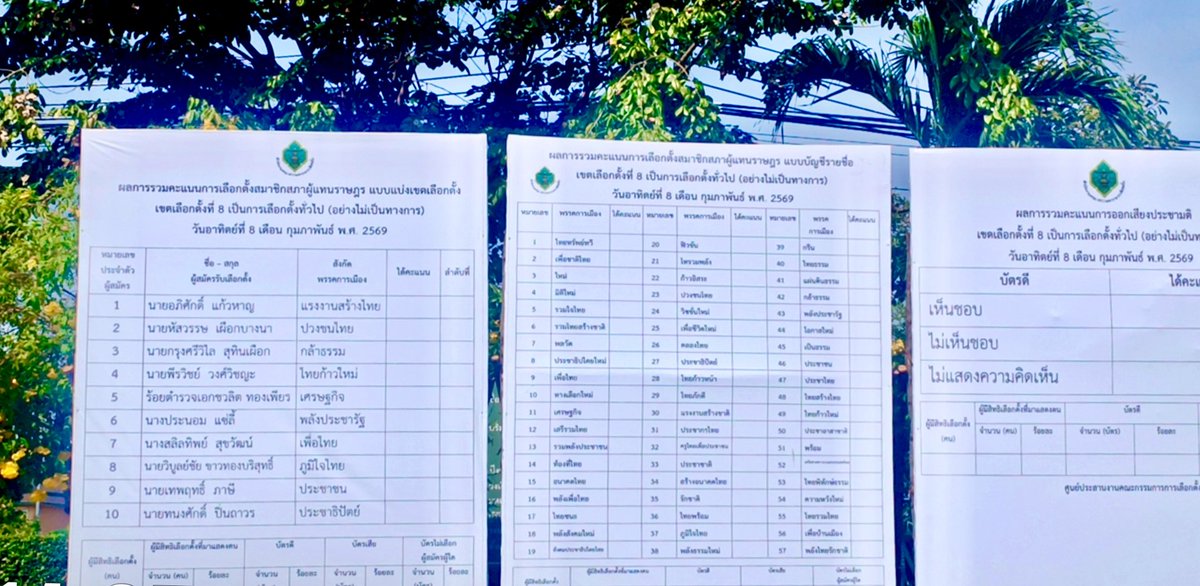 ผลการรวมคะแนนการเลือกตั้งสมาชิกสภาผู้แทนราษฎร แบบแบ่งเขตเลือกตั้ง
เขตเลือกตั้งที่ 8 เป็นการเลือกตั้งทั่วไป (อย่างไม่เป็นทางการ)
วันอาทิตย์ที่ 8 เดือน กุมภาพันธ์ พ.ศ. 2569
หมายเลขประจำตัวผู้สมัคร ชื่อ - สกุล ผู้สมัครรับเลือกตั้ง สังกัดพรรคการเมือง ได้คะแนน ลำดับที่
1 นายอภิศักดิ์ แก้วหาญ แรงงานสร้างไทย
2 นายหัสวรรษ เผือกบางนา ปวงชนไทย
3 นายกรุงศรีวิไล สุทินเผือก กล้าธรรม
4 นายพีรวิชย์ วงศ์วิชญะ ไทยก้าวใหม่
5 ร้อยตำรวจเอกชวลิต ทองเพียร เศรษฐกิจ
6 นางประนอม แซ่ลี้ พลังประชารัฐ
7 นางสลิลทิพย์ สุขวัฒน์ เพื่อไทย
8 นายวิบูลย์ชัย ขาวทองบริสุทธิ์ ภูมิใจไทย
9 นายเทพฤทธิ์ ภาษี ประชาชน
10 นายทนงศักดิ์ ปิ่นถาวร ประชาธิปัตย์
ผู้มีสิทธิเลือกตั้ง (คน) ผู้มีสิทธิเลือกตั้งที่มาแสดงตน บัตรดี บัตรเสีย บัตรไม่เลือกผู้สมัครผู้ใด
จำนวน (คน) ร้อยละ จำนวน ร้อยละ จำนวน ร้อยละ จำนวน ร้อยละ
ผลการรวมคะแนนการเลือกตั้งสมาชิกสภาผู้แทนราษฎร แบบบัญชีรายชื่อ
เขตเลือกตั้งที่ 8 เป็นการเลือกตั้งทั่วไป (อย่างไม่เป็นทางการ)
วันอาทิตย์ที่ 8 เดือน กุมภาพันธ์ พ.ศ. 2569
หมายเลข พรรคการเมือง ได้คะแนน หมายเลข พรรคการเมือง ได้คะแนน หมายเลข พรรคการเมือง ได้คะแนน
1 ไทยทรัพย์ทวี 20 ฟิวชัน 39 กรีน
2 เพื่อชาติไทย 21 ไทรวมพลัง 40 ไทยธรรม
3 ใหม่ 22 ก้าวอิสระ 41 แผ่นดินธรรม
4 มิติใหม่ 23 ปวงชนไทย 42 กล้าธรรม
5 รวมใจไทย 24 วิชชั่นใหม่ 43 พลังประชารัฐ
6 รวมไทยสร้างชาติ 25 เพื่อชีวิตใหม่ 44 โอกาสใหม่
7 พลวัต 26 คลองไทย 45 เป็นธรรม
8 ประชาธิปไตยใหม่ 27 ประชาธิปัตย์ 46 ประชาชน
9 เพื่อไทย 28 ไทยก้าวหน้า 47 ประชาไทย
10 ทางเลือกใหม่ 29 ไทยภักดี 48 ไทยสร้างไทย
11 เศรษฐกิจ 30 แรงงานสร้างชาติ 49 ไทยก้าวใหม่
12 เสรีรวมไทย 31 ประชากรไทย 50 ประชาอาสาชาติ
13 รวมพลังประชาชน 32 ครูไทยเพื่อประชาชน 51 พร้อม
14 ท้องที่ไทย 33 ประชาชาติ 52
15 อนาคตไทย 34 สร้างอนาคตไทย 53 ไทยพิทักษ์ธรรม
16 พลังเพื่อไทย 35 รักชาติ 54 ความหวังใหม่
17 ไทยชนะ 36 ไทยพร้อม 55 ไทยรวมไทย
18 พลังสังคมใหม่ 37 ภูมิใจไทย 56 เพื่อบ้านเมือง
19 สังคมประชาธิปไตยไทย 38 พลังธรรมใหม่ 57 พลังไทยรักชาติ
ผู้มีสิทธิเลือกตั้ง ผู้มีสิทธิเลือกตั้งที่มาแสดงตน บัตรดี บัตรเสีย
ผลการรวมคะแนนการออกเสียงประชามติ
เขตเลือกตั้งที่ 8 เป็นการเลือกตั้งทั่วไป (อย่างไม่เป็นทา
วันอาทิตย์ที่ 8 เดือน กุมภาพันธ์ พ.ศ. 2569
บัตรดี ได้คะแ
เห็นชอบ
ไม่เห็นชอบ
ไม่แสดงความคิดเห็น
ผู้มีสิทธิเลือกตั้ง (คน) ผู้มีสิทธิเลือกตั้งที่มาแสดงตน บัตรดี
จำนวน (คน) ร้อยละ จำนวน (บัตร) ร้อยละ จำนวน
ศูนย์ประสานงานคณะกรรมการการเลือกตั้ง